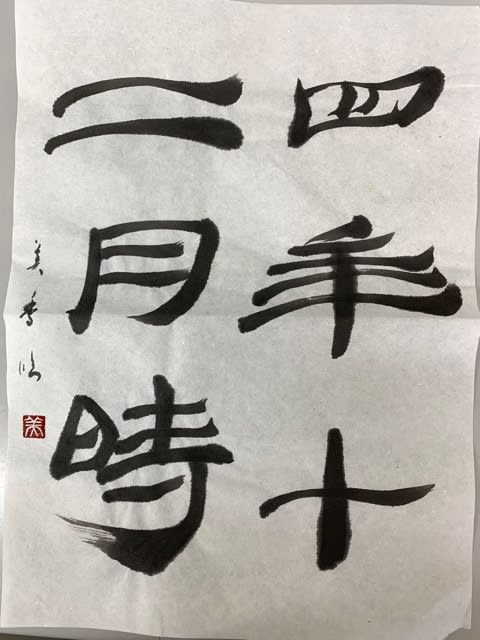 四年十
二月時
美香臨
美